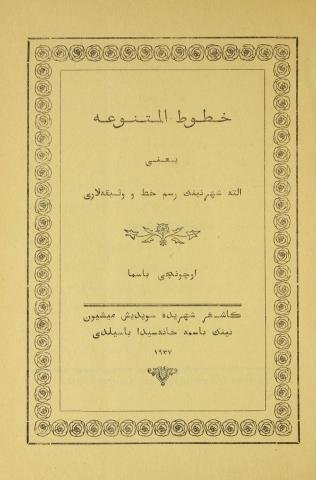 خطوط المتنوعه
يعنى
التە شهرنينک رسم خط و وثيقەلارى
اوچونچى باسما
کاشغر شهريدە سويديش ميشيون
نينک باسمە خانەسيدا باسيلدى
١٩٣٧